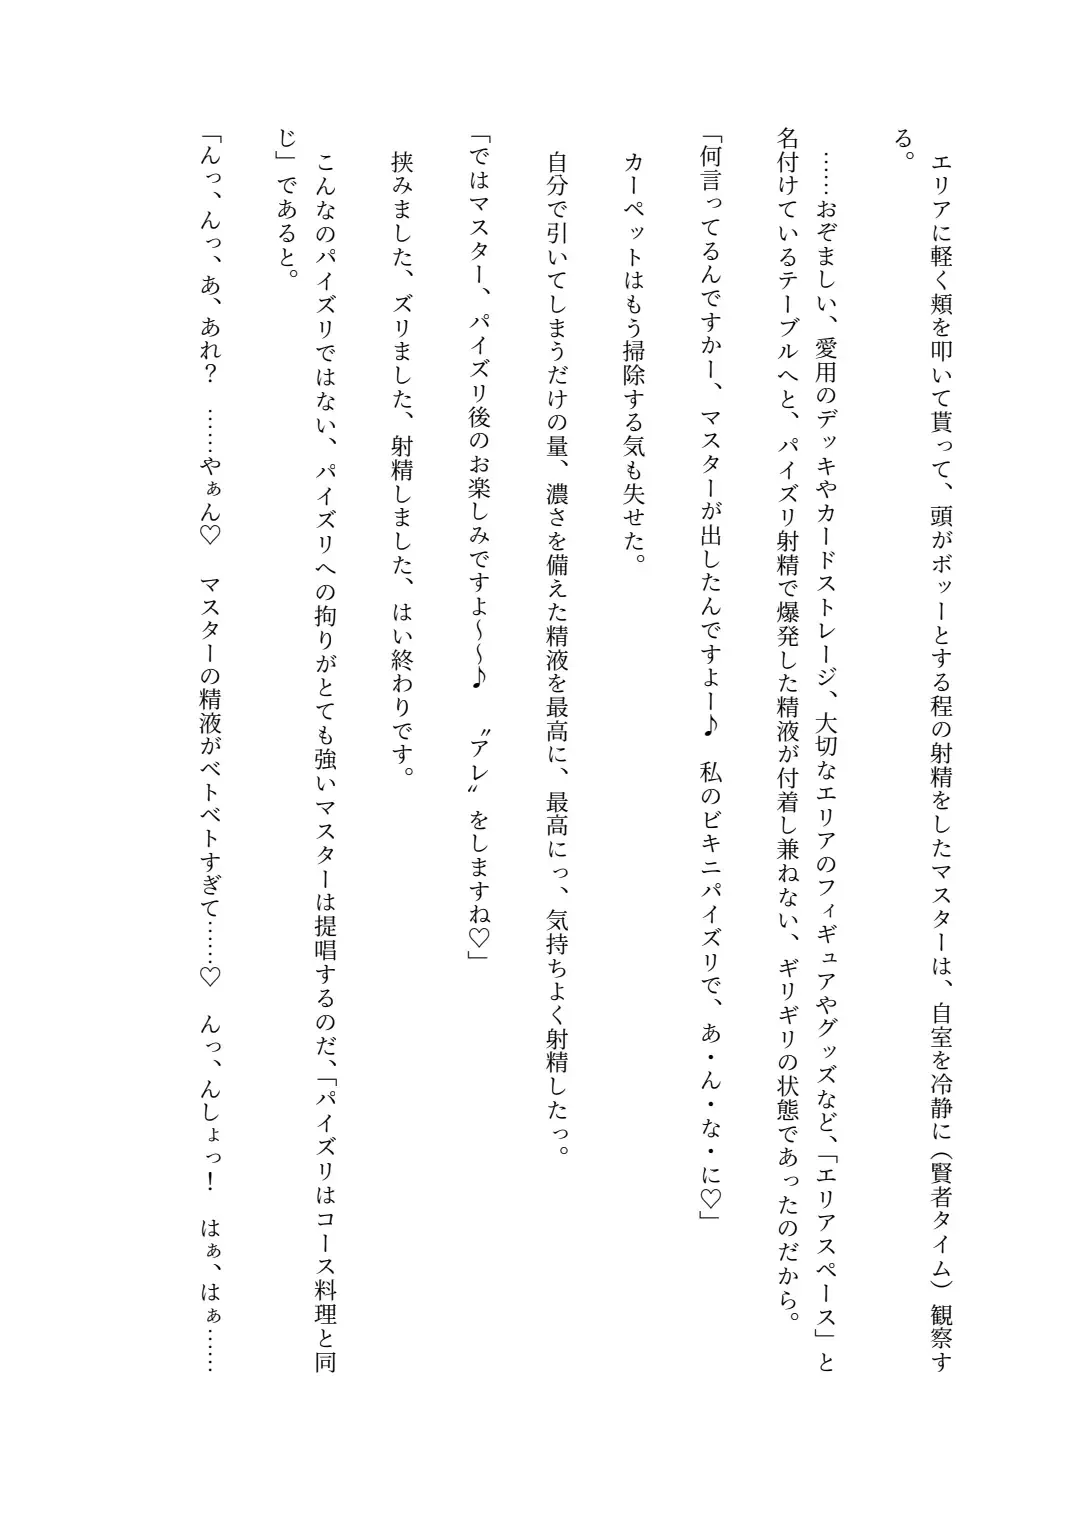 エリアに軽く頬を叩いて貰って、頭がボッーとする程の射精をしたマスターは、自室を冷静に（賢者タイム）観察す
る。
　……おぞましい、愛用のデッキやカードストレージ、大切なエリアのフィギュアやグッズなど、「エリアスペース」と
名付けているテーブルへと、パイズリ射精で爆発した精液が付着し兼ねない、ギリギリの状態であったのだから。
「何言ってるんですかー、マスターが出したんですよー♪　私のビキニパイズリで、あ・ん・な・に♡」
　カーペットはもう掃除する気も失せた。
　自分で引いてしまうだけの量、濃さを備えた精液を最高に、最高にっ、気持ちよく射精したっ。
「ではマスター、パイズリ後のお楽しみですよ～～♪　〝アレ〟をしますね♡」
　挟みました、ズリました、射精しました、はい終わりです。
　こんなのパイズリではない、パイズリへの拘りがとても強いマスターは提唱するのだ、「パイズリはコース料理と同
じ」であると。
「んっ、んっ、あ、あれ？　……やぁん♡　マスターの精液がベトベトすぎて……♡　んっ、んしょっ！　はぁ、はぁ……